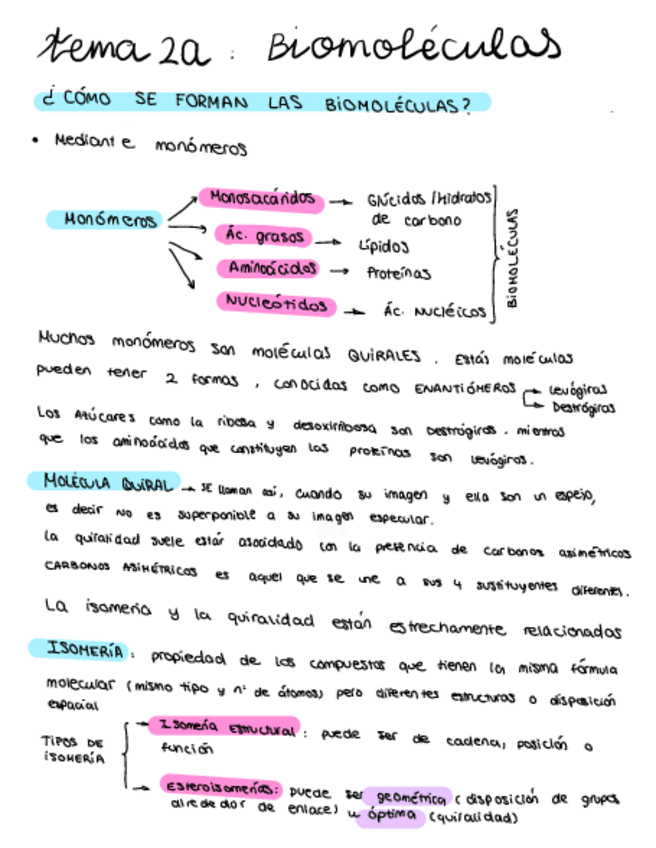 tema 2a: Biomoléculas
¿CÓMO SE FORMAN LAS BIOMOLÉCULAS?
• Mediante monómeros
Monómeros
Monosacáridos → Glúcidos/Hidratos de carbono
Ác. grasos → Lípidos
Aminoácidos → Proteínas
Nucleótidos → Ác. Nucléicos
BIOMOLÉCULAS
Muchos monómeros son moléculas QUIRALES. Estás moléculas
pueden tener 2 formas, conocidas como ENANTIÓMEROS → Levógiras
→ Destrógiras
Los Azúcares como la ribosa y desoxirribosa son Destrógiros. mientras
que los aminoácidos que constituyen las proteínas son levógiros.
MOLÉCULA QUIRAL → SE llaman así, cuando su imagen y ella son un espejo,
es decir NO es superponible a su imagen especular.
La quiralidad suele estár asocidado con la presencia de carbonos asimétricos
CARBONOS ASIMÉTRICOS es aquel que se une a sus 4 sustituyentes diferentes.
La isomería y la quiralidad están estrechamente relacionados
ISOMERÍA: propiedad de los compuestos que tienen la misma fórmula
molecular (mismo tipo y nº de átomos) pero diferentes estructuras o disposición
espacial
TIPOS DE
ISOMERÍA
→ Isomería Estructural: puede ser de cadena, posición o
función
→ Esteroisomerías: puede ser geométrica (disposición de grupos
alrededor de enlace) u óptima (quiralidad)